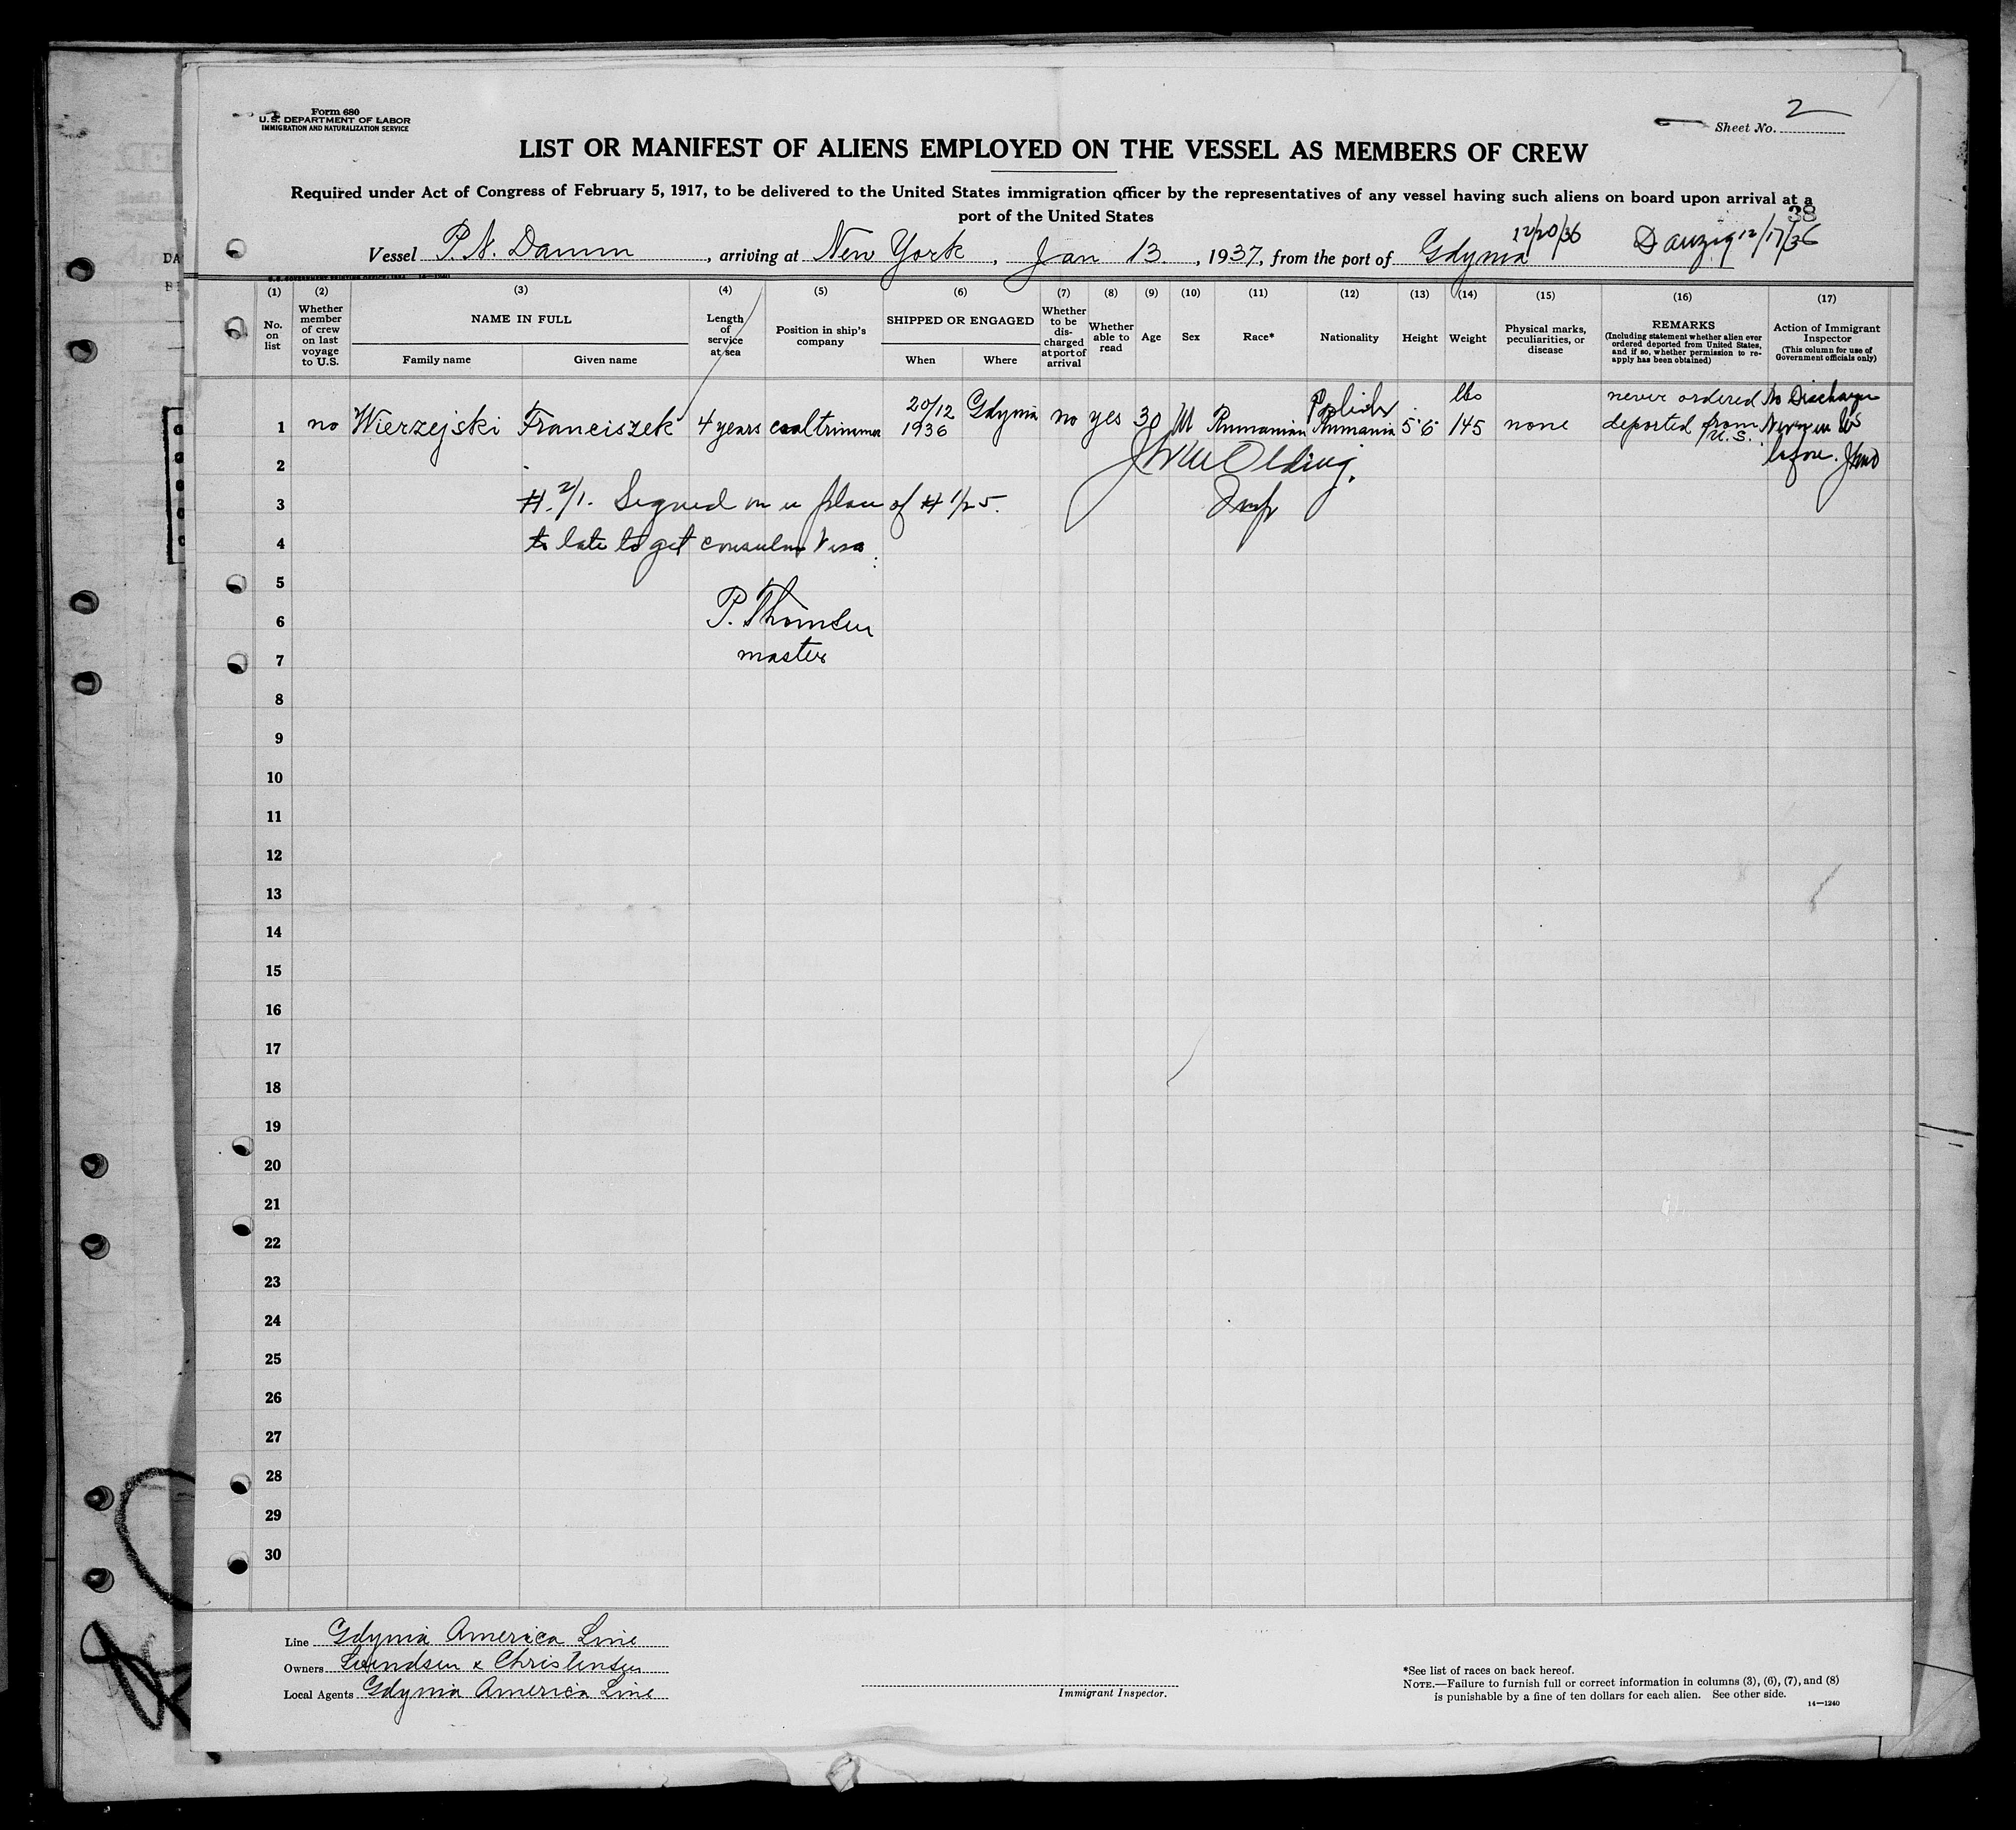 Form 680
U.S. DEPARTMENT OF LABOR
IMMIGRATION AND NATURALIZATION SERVICE
Sheet No. 2
LIST OR MANIFEST OF ALIENS EMPLOYED ON THE VESSEL AS MEMBERS OF CREW
Required under Act of Congress of February 5, 1917, to be delivered to the United States immigration officer by the representatives of any vessel having such aliens on board upon arrival at a
port of the United States
38
Vessel P.N. Damm, arriving at New York, Jan 13, 1937, from the port of Gdynia 12/20/36 Danzig 12/17/36
(1) (2) (3) (4) (5) (6) (7) (8) (9) (10) (11) (12) (13) (14) (15) (16) (17)
No. on list
Whether member of crew on last voyage to U.S.
NAME IN FULL
Family name
Given name
Length of service at sea
Position in ship's company
SHIPPED OR ENGAGED
When
Where
Whether to be discharged at port of arrival
Whether able to read
Age
Sex
Race*
Nationality
Height
Weight
Physical marks, peculiarities, or disease
REMARKS
(Including statement whether alien ever ordered deported from United States, and if so, whether permission to reapply has been obtained)
Action of Immigrant Inspector
(This column for use of Government officials only)
1 no Wierzejski Franciszek 4 years coaltrimmer 20/12 1936 Gdynia no yes 30 M Rumanian Polish Rumania 5'6 145 lbs none never ordered deported from U.S. No Discharge Never in US before.
2
3 #.2/1. Signed on in place of # 1/25.
4 to late to get consular Visa
5
6 P. Thomsen
7 master
8
9
10
11
12
13
14
15
16
17
18
19
20
21
22
23
24
25
26
27
28
29
30
Line Gdynia America Line
Owners Svendsen & Christensen
Local Agents Gdynia America Line
Immigrant Inspector.
*See list of races on back hereof.
NOTE.—Failure to furnish full or correct information in columns (3), (6), (7), and (8)
is punishable by a fine of ten dollars for each alien. See other side.
14—1240